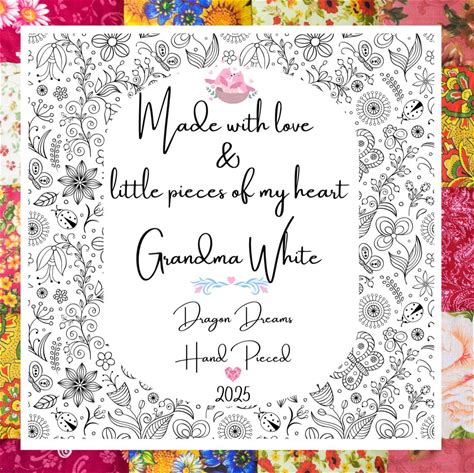 Made with love
&
little pieces of my heart
Grandma White
Dragon Dreams
Hand Pieced
2025